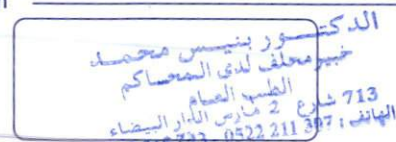 الدكتور بنيس محمد
خبير محلف لدى المحاكم
الطب العام
713 شارع 2 مارس الدار البيضاء
الهاتف : 0522 211 397